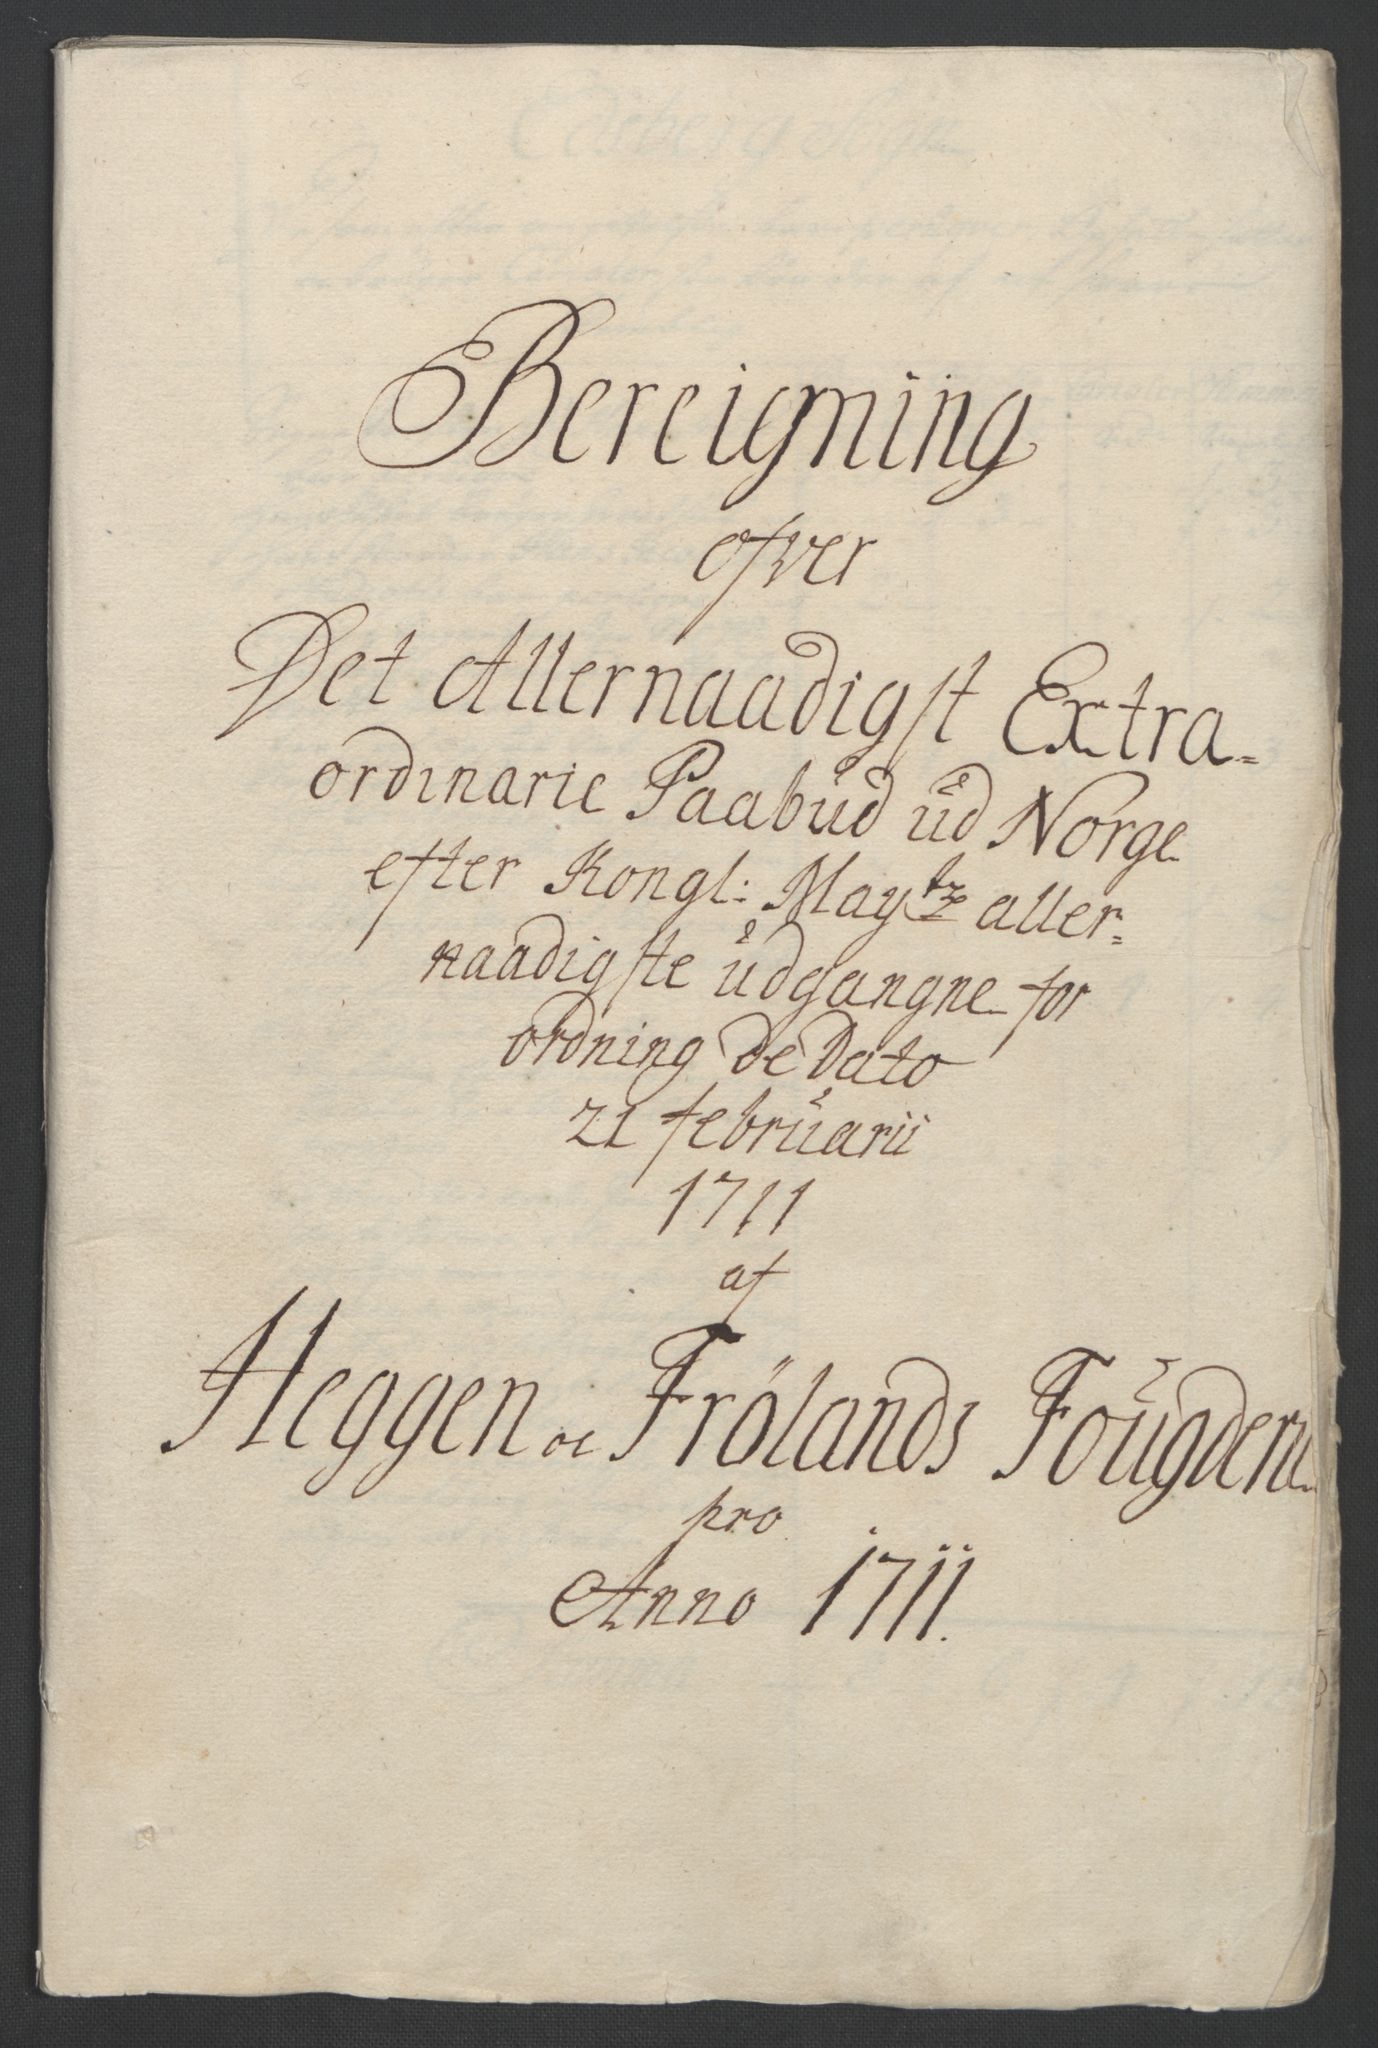 Bereigning
ofver
Det Allernaadigst Extra=
ordinarie Paabud ud Norge
efter Kongl: Maytz aller=
naadigste udgangne for
ordning de Dato
21 februarii
1711
af
Heggen oc Frölands Fougderie
pro
Anno 1711.